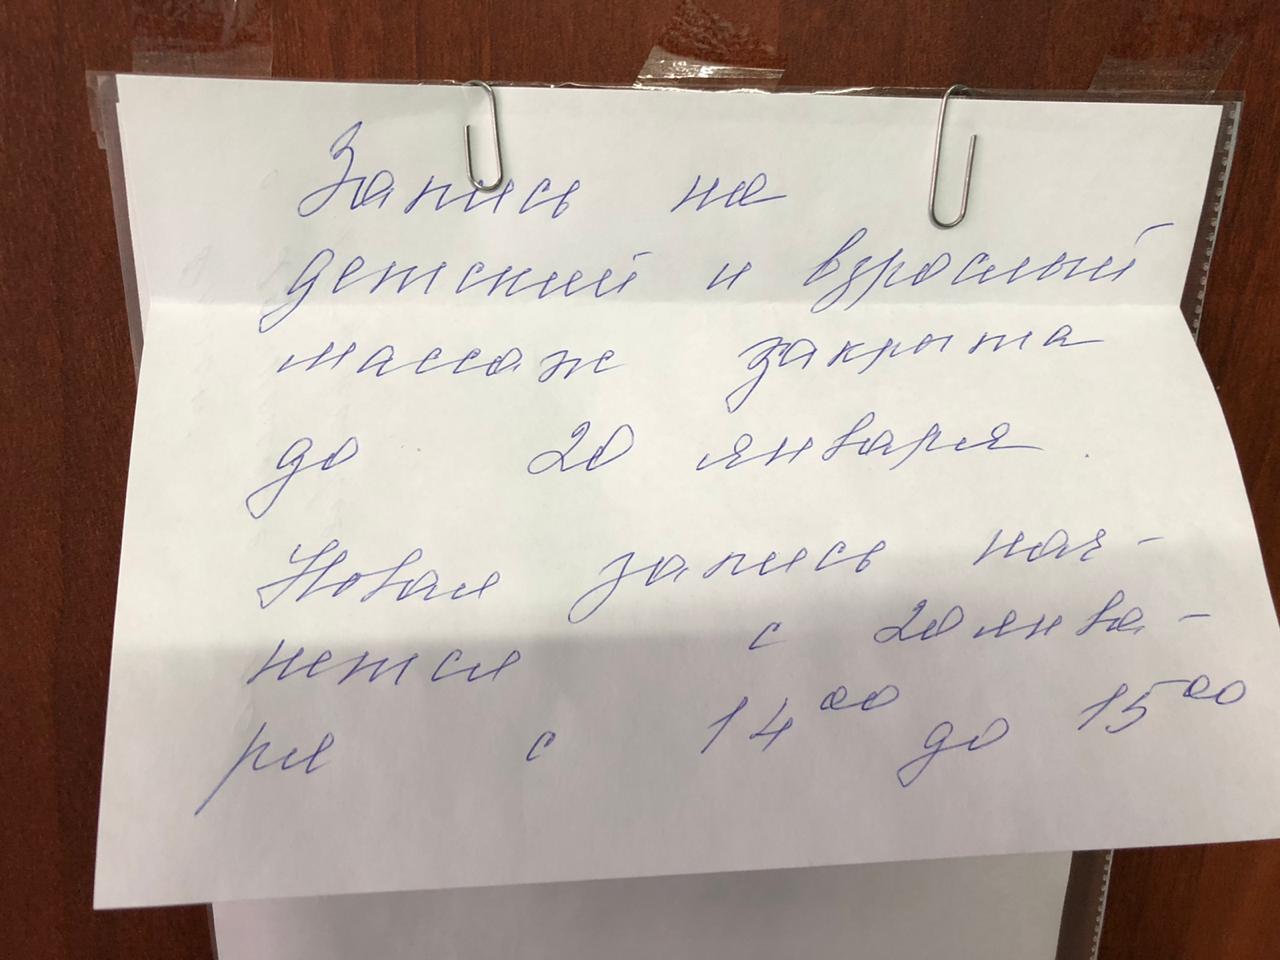 Запись на
детский и взрослый
массаж закрыта
до 20 января.
Новая запись нач-
нется с 20 янва-
ря с 14⁰⁰ до 15⁰⁰